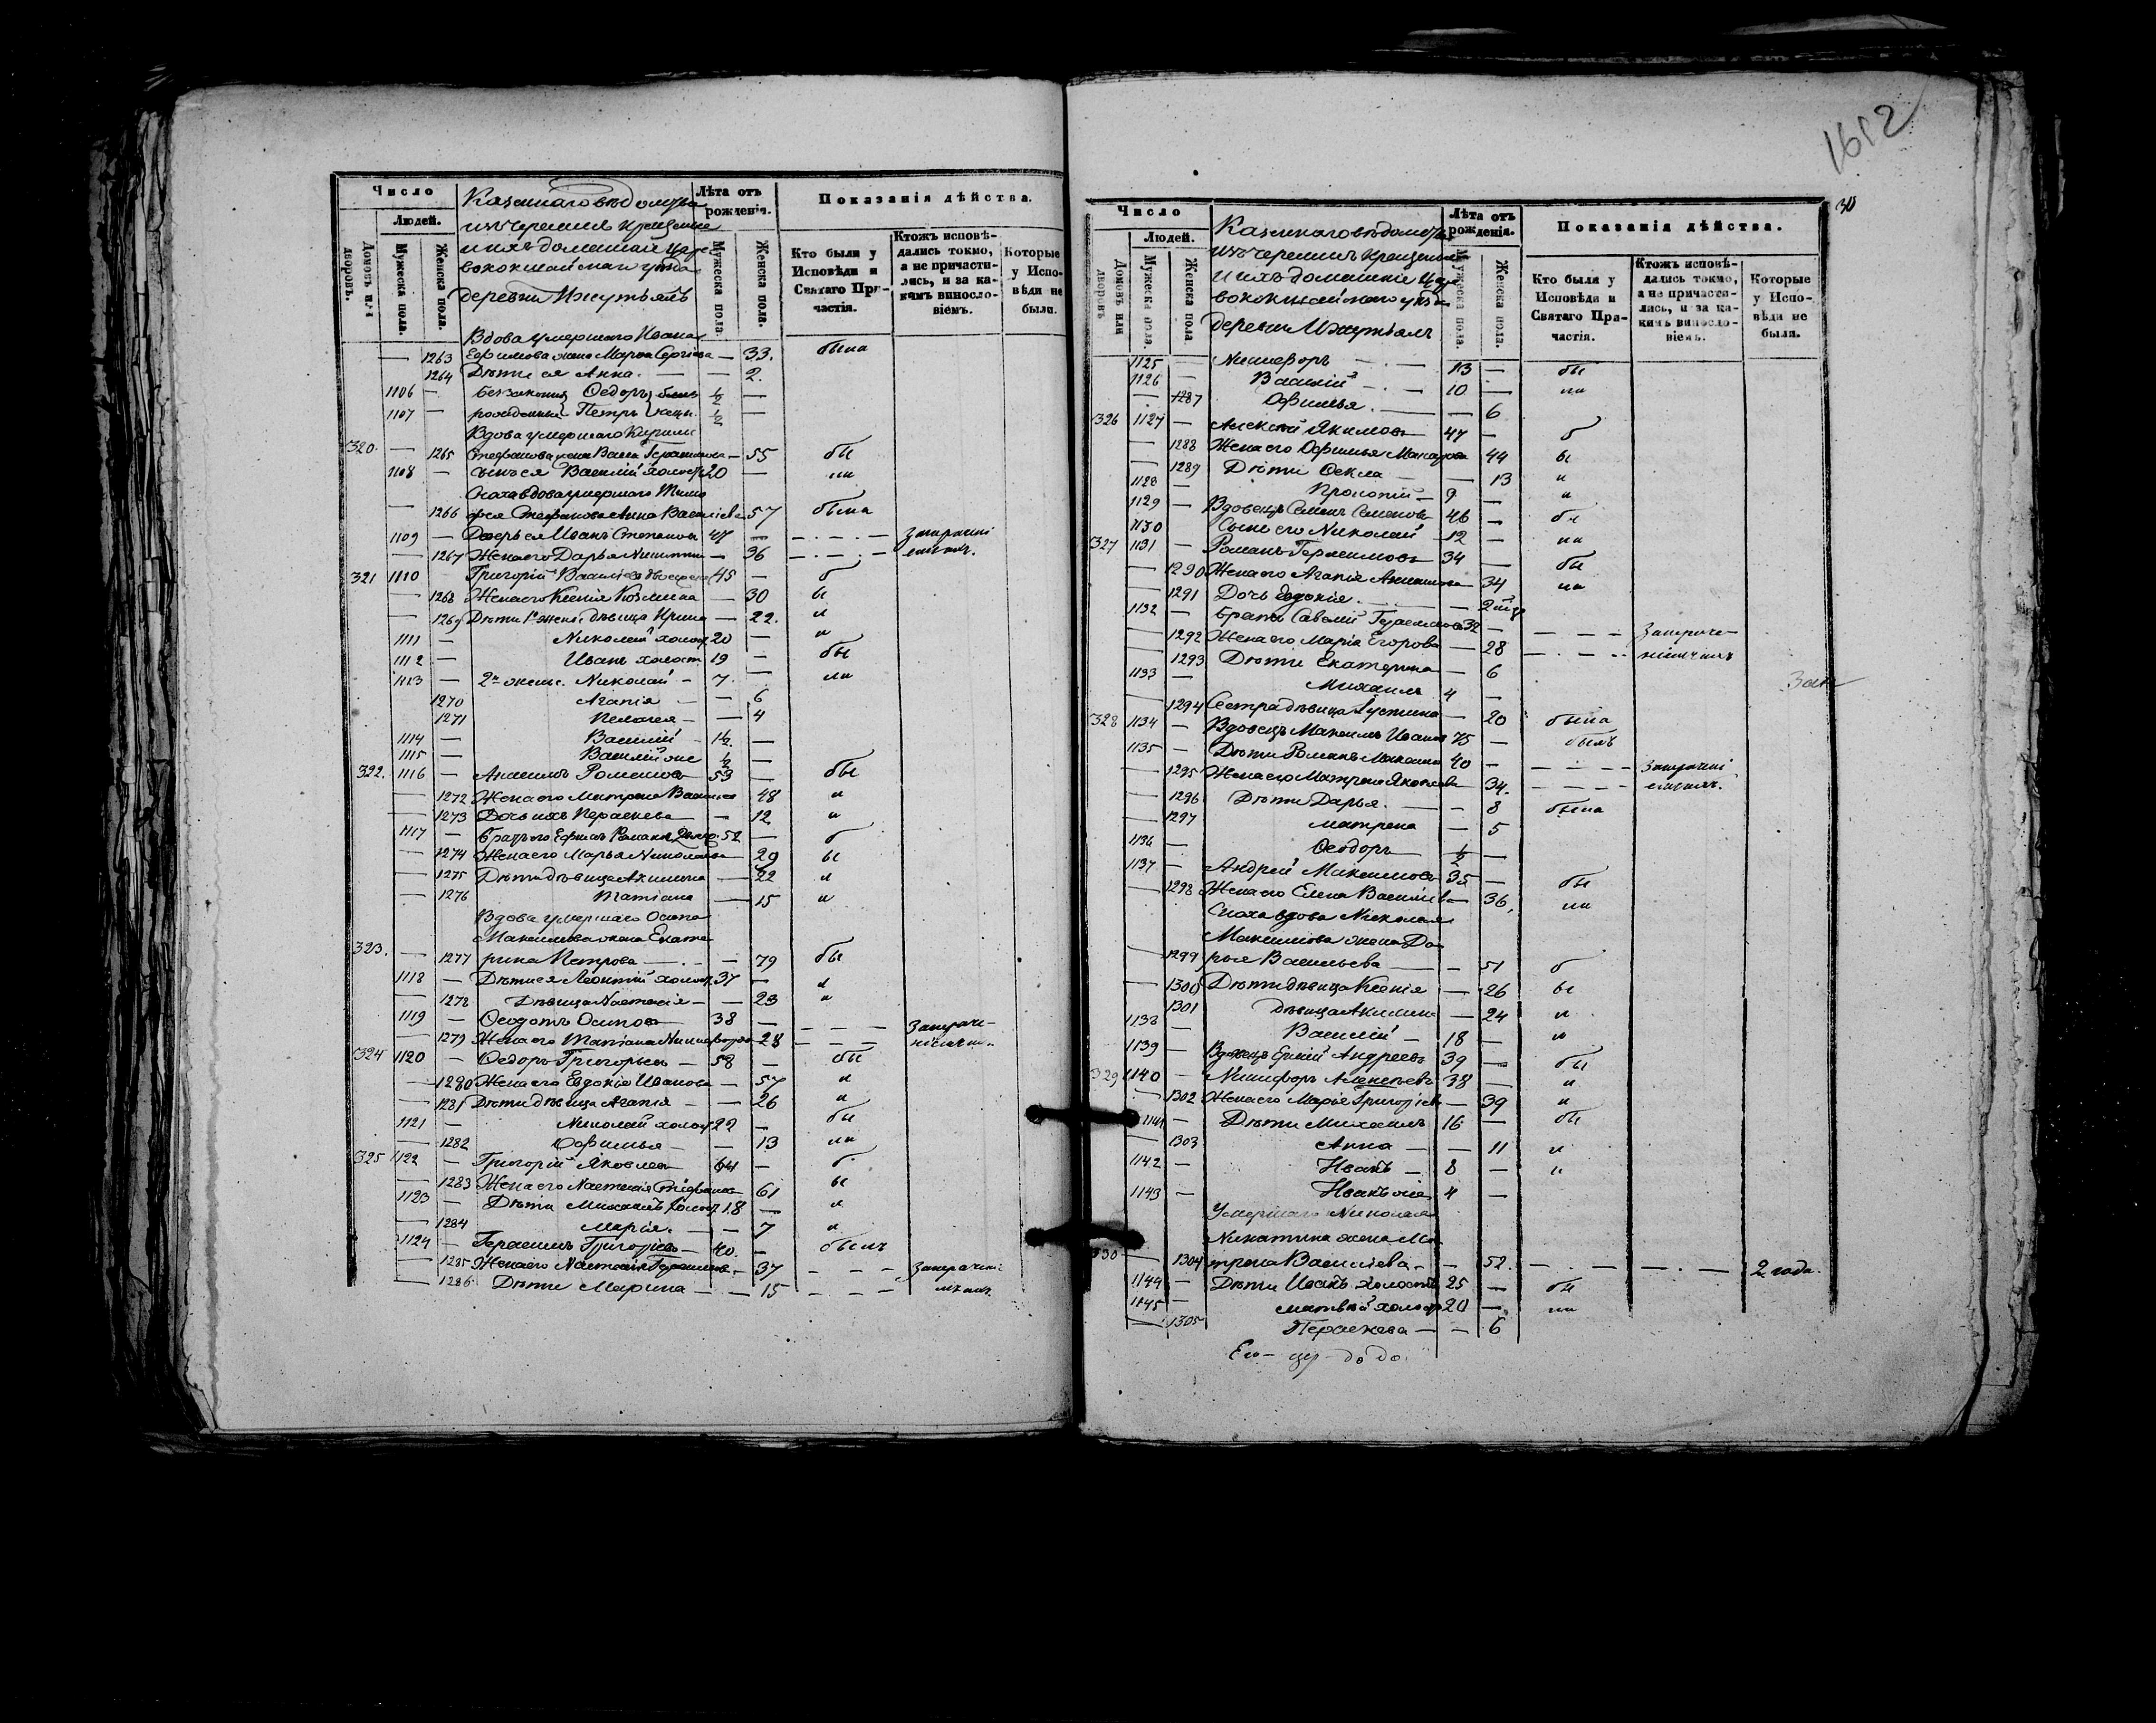 Число
Людей.
Домовъ или дворовъ.
Мужеска пола.
Женска пола.
Казеннаго вѣдомства
изъ черемисъ крещеные
и ихъ домашніи Царе-
вококшайскаго уѣзда
деревни
Лѣта отъ рожденія.
Мужеска пола.
Женска пола.
Показанія дѣйства.
Кто были у Исповѣди и Святаго При-частія.
Ктожъ исповѣ-дались токмо, а не причасти-лись, и за ка-кимъ винословіемъ.
Которые у Испо-вѣди не были.
Вдова умершаго Ивана
— 1263 Ефимова жена Марѳа Сергіева — 33. была
1264 Дѣти ея Анна. — — 2.
1106 — Беззаконно Ѳедоръ близ ½ —
1107 — рожденные Петръ нецы ½ —
Вдова умершаго Кирилы
320. — 1265 Стефанова жена Васса Герасимова — 55 бы
1108 — сынъ ея Василій холост 20 — ли
Сноха вдова умершаго Тимо
— 1266 фея Стефанова Анна Васильева 57 была
1109 — Деверь ея Иванъ Степановъ 47 — — . — . — За отлучкі
— 1267 Жена его Дарья Никитина — 36 — . — . —
321 1110 Григорій Васильевъ 45 — б
— 1268 Жена его Ксенія Козмина — 30 ы
— 1269 Дѣти 1й жены, дѣвица Ирина — 22. л
1111 — Николай холост 20 — и
1112 — Иванъ холост 19 — бы
1113 — 2й жены. Николай — 7. — ли
1270 Агапія — — 6
1271 Пелагея — — 4
1114 — Василій — 1½. —
1115 — Василій же ½ —
322. 1116 — Анисимъ Романовъ 53 — бы
— 1272 Жена его Матрена Васильева 48 л
— 1273 Дочь ихъ Параскева — 12 и
1117 — Братъ его Ефимъ Романовъ 52 — б
— 1274 Жена его Марья Николаева — 29 ы
— 1275 Дѣти дѣвица Акилина — 22 л
— 1276 Татіана — 15 и
Вдова умершаго Осипа
Максимова жена Екате-
323. — 1277 рина Петрова — . — — 79 бы
1118 — Дѣти ея Леонтій холост 37 — л
— 1278 Дѣвица Настасія — — 23 и
1119 — Ѳеодотъ Осиповъ 38 — — — —
— 1279 Жена его Татіана Никифорова — 28 — — —
324 1120 — Ѳедоръ Григорьевъ — 58 — бы
— 1280 Жена его Евдокія Иванова — 57 л
— 1281 Дѣти дѣвица Агапія — — 26 и
1121 — Николай холост 22 — бы
— 1282 Ѳефимья — — 13 ли
325 1122 — Григорій Яковлевъ 64 — б
— 1283 Жена его Настасія Стефанова 61 ы
1123 — Дѣти Михаилъ холост 18 — л
— 1284 Марія. — — 7 и
1124 — Герасимъ Григорьевъ — 40. — былъ
— 1285 Жена его Настасія Герасимова — 37 — — —
— 1286 Дѣти Марина — — 15 — — —
1612
30
Число
Людей.
Домовъ или дворовъ.
Мужеска пола.
Женска пола.
Казеннаго вѣдомства
изъ черемисъ крещеные
и ихъ домашніи Царе-
вококшайскаго уѣзда
деревни
Лѣта отъ рожденія.
Мужеска пола.
Женска пола.
Показанія дѣйства.
Кто были у Исповѣди и Святаго При-частія.
Ктожъ исповѣ-дались токмо, а не причасти-лись, и за ка-кимъ винословіемъ.
Которые у Испо-вѣди не были.
1125 — Никифоръ — . — 13 — бы
1126 — Василій — . — 10 — ли
— 1287 Ѳефимья. — — 6
326 1127 — Алексѣй Якимовъ 47 — б
— 1288 Жена его Ѳефимья Макарова 44 ы
— 1289 Дѣти Ѳекла — — 13 л
1128 — Прокопій — 9 — и
1129 — Вдовецъ Семенъ Семеновъ 46 — бы
1130 Сынъ его Николай — 12 — ли
327 1131 — Романъ Герасимовъ 34 — бы
— 1290 Жена его Агапія Акимова 34 ли
— 1291 Дочь Евдокія.
1132 — Братъ Савелій Герасимовъ 32 — — — —
— 1292 Жена его Марія Егорова — 28 — . — . —
— 1293 Дѣти Екатерина — 6
1133 — Михаилъ 4 —
— 1294 Сестра дѣвица Іустина — 20 была
328 1134 — Вдовецъ Максимъ Ивановъ 75 — былъ
1135 — Дѣти Романъ Максимовъ 40 — — . — . —
— 1295 Жена его Матрена Яковлева 34. — — — —
— 1296 Дѣти Дарья. — — 8 была
— 1297 Матрена — 5
1136 — Ѳеодоръ ½ —
1137 — Андрей Максимовъ 35 — бы
— 1298 Жена его Елена Васильева 36, ли
Сноха вдова Николая
Максимова жена Да-
— 1299 рья Васильева — — 51 б
— 1300 Дѣти дѣвица Ксенія — 26 ы
— 1301 дѣвица Акилина — 24 л
1138 — Василій — 18 — и
1139 — Вдовецъ Андреевъ 39 — бы
329 1140 — Никифоръ Алексѣевъ 38 — л
— 1302 Жена его Марія Григорьева — 39 и
1141 — Дѣти Михаилъ 16 — бы
— 1303 Анна — — 11 л
1142 — Иванъ — 8 — и
1143 — Иванъ же 4 —
Умершаго Николая
Никитина жена Ма-
330 — 1304 трена Васильева — — 52. — . — — . — 2 года.
1144 — Дѣти Иванъ холостъ 25 — бы
1145 — Матвѣй холост 20 — ли
— 1305 Параскева — — 6